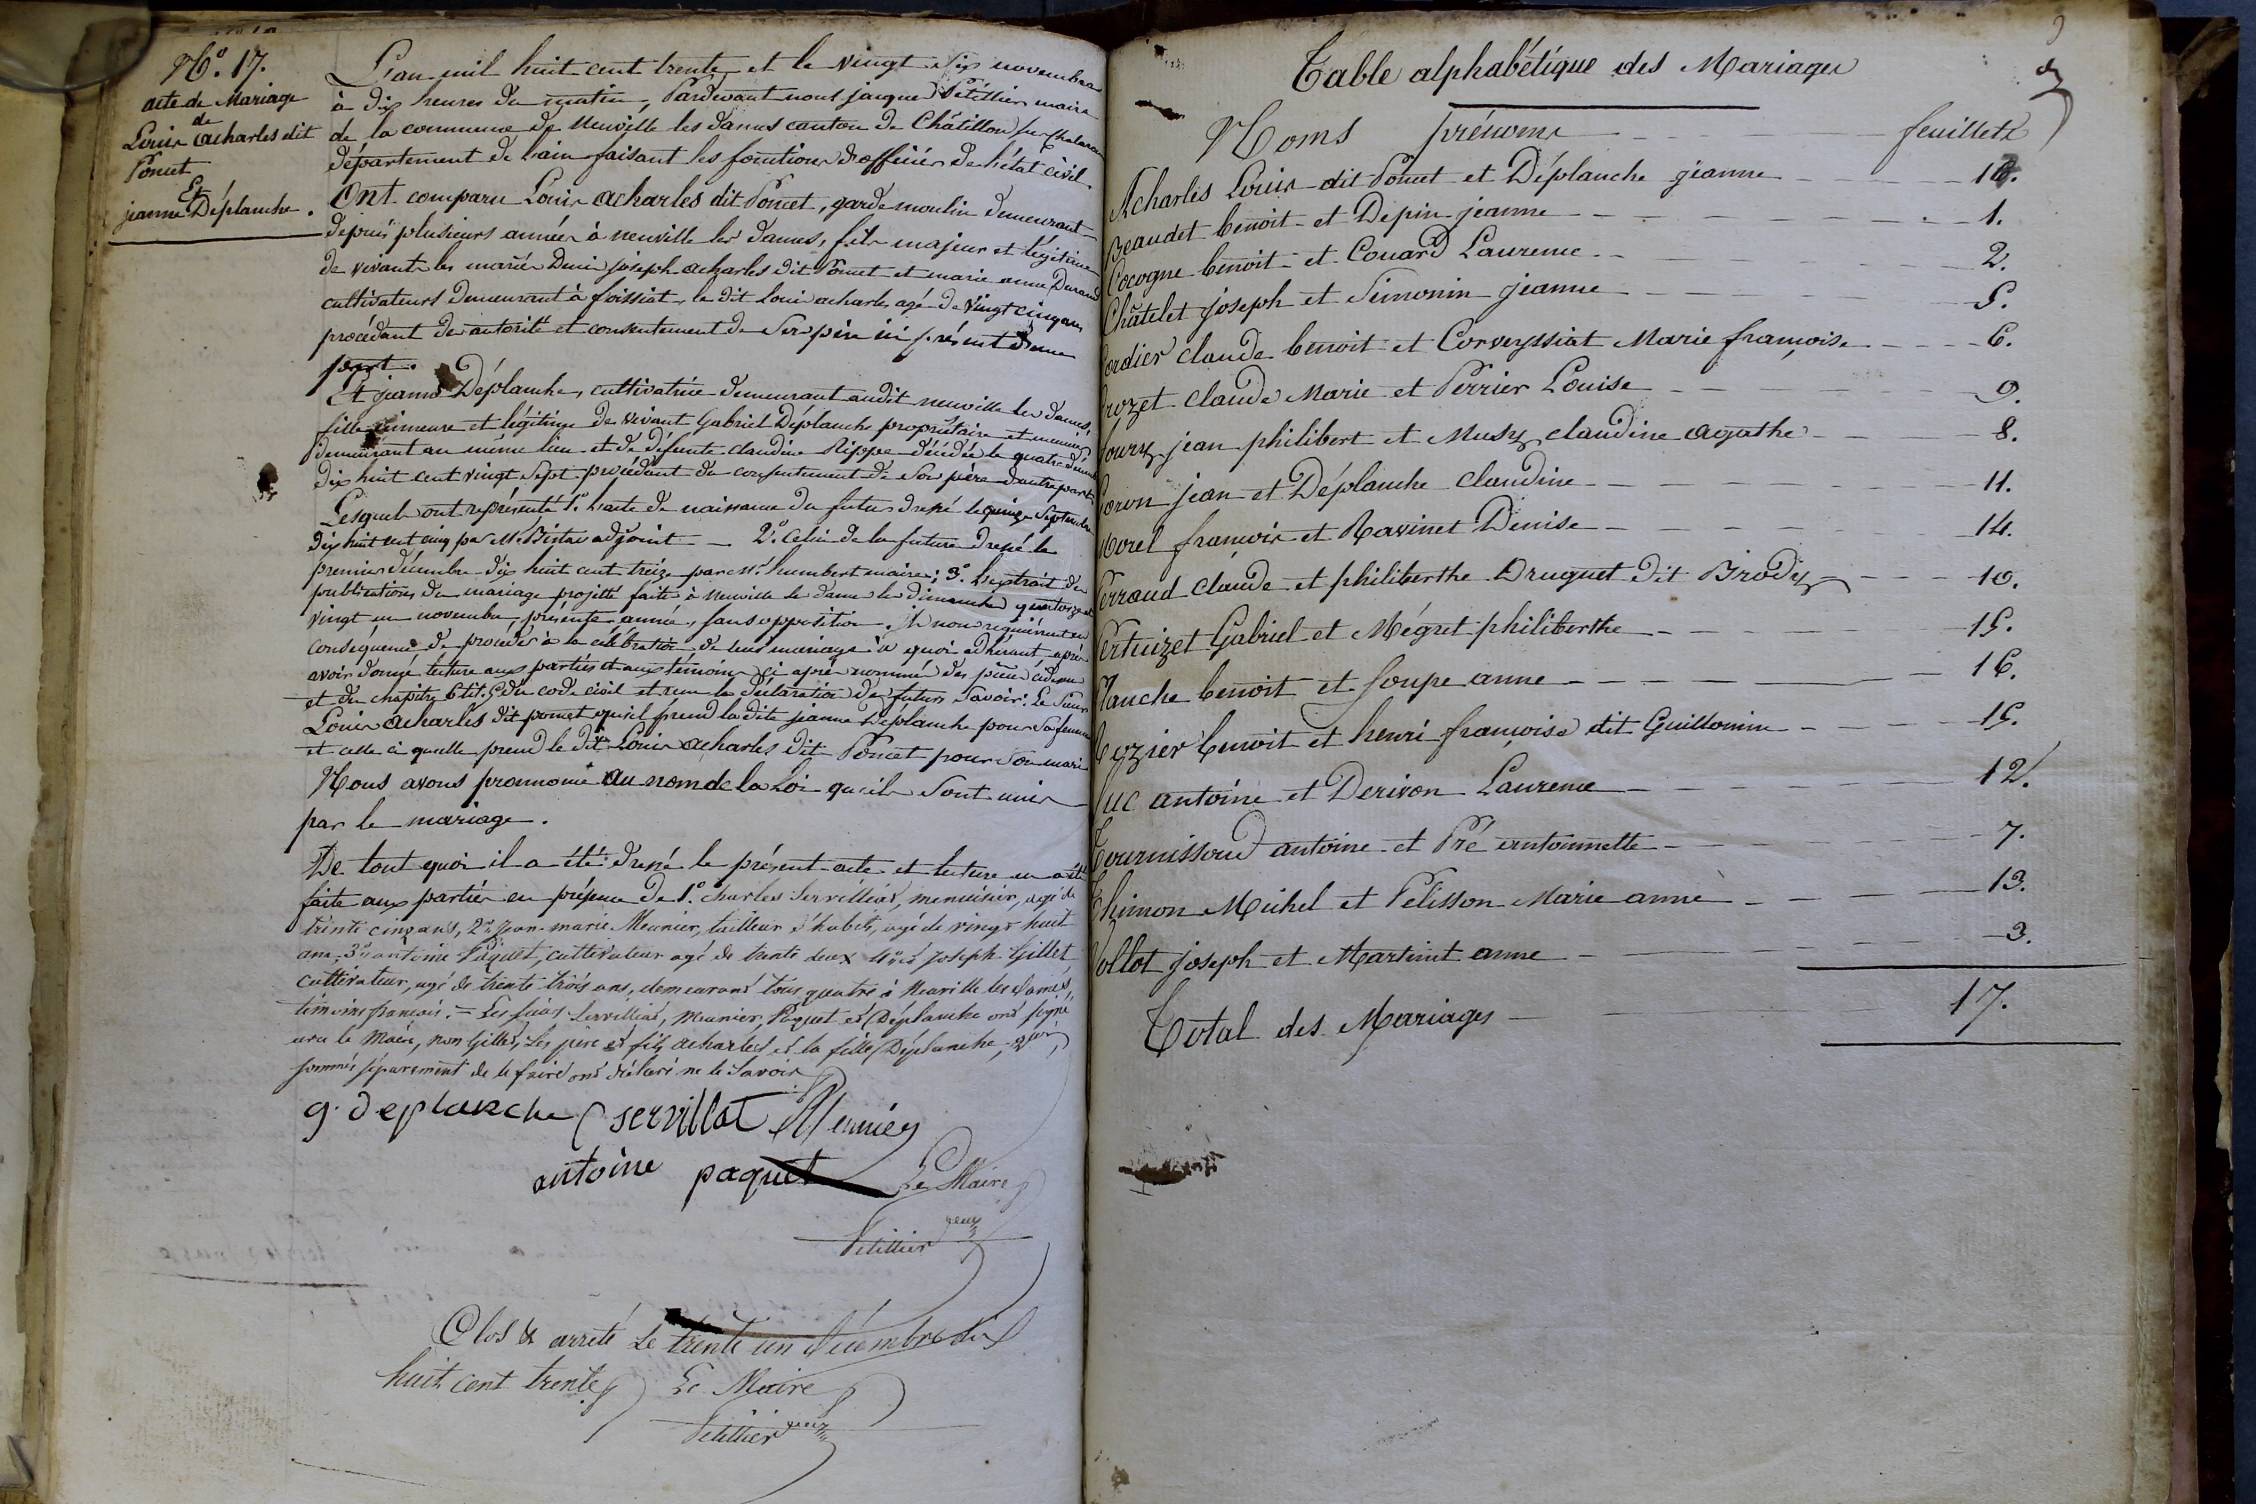 N.° 17.
acte de Mariage
de
Louis acharles dit
Poncet
Et
jeanne Déplanche.
L'an mil huit cent trente et le vingt six novembre
à dix heures du matin, Pardevant nous jacques Pétillier maire
de la commune de Neuville les dames canton de Châtillon sur Chalaronne
département de l'ain faisant les fonctions d'officier de l'état civil.
Ont comparu Louis acharles dit Poncet, garde moulin demeurant
depuis plusieurs années à neuville les dames, fils majeur et légitime
de vivants les mariés Denis joseph acharles dit Poncet et marie anne Durand
cultivateurs demeurant à foissiat, le dit Louis acharles agé de vingt cinq ans
procédant de autorité et consentement de Son père ici présent d'une
part.
Et jeanne Déplanche, cultivatrice demeurant audit neuville les dames,
fille mineure et légitime de vivant Gabriel Déplanche propriétaire et meunier
demeurant au même lieu et de défunte claudine Rippe décédée le quatre
dix huit cent vingt Sept procédant du consentement de Son père d'autre part.
Lesquels ont représenté 1.° l'acte de naissance du futur dressé le quinze Septembre
dix huit cent cinq par M. adjoint — 2.° celui de la future dressé le
premier décembre dix huit cent treize par M. humbert maire; 3.° l'extrait des
publications du mariage projetté faite à Neuville les dames les dimanches quatorze et
vingt un novembre présente année, sans opposition. Ils nous requièrent en
conséquence de procéder à la célébration de leur mariage à quoi adhérant après
avoir donné lecture aux parties et aux témoins ci après nommé des pièces
et du chapitre 6 tit. 5 du code civil et reçu la déclaration des futurs Savoir: Le Sieur
Louis acharles dit poncet qu'il prend la dite jeanne Déplanche pour Sa femme
et celle ci qu'elle prend le dit Louis acharles dit Poncet pour Son mari
Nous avons prononcé au nom de la Loi qu'ils Sont unis
par le mariage.
De tout quoi il a été dressé le présent acte et lecture en a été
faite aux parties en présence de 1.° Charles Servilliat, menuisier, agé de
trente cinq ans, 2.° Jean-marie Meunier, tailleur d'habits, agé de vingt huit
ans, 3.° antoine Paquet, cultivateur agé de trente deux Joseph Gillet
cultivateur, agé de trente trois ans, demeurans tous quatre à Neuville les Dames,
témoins français. = Les Servilliat, Meunier, Paquet et Déplanche ont signé
avec le Maire, non Gillet, Les père et fils acharles et la fille Déplanche, qui
sommés séparément de le faire ont déclaré ne le savoir
g. deplanche C servillat Meuniér
antoine paquet Le Maire
Pétillier
Clos & arrêté Le trente un Décembre dix
huit cent trente Le Maire
Pétillier
Table alphabétique des Mariages
Noms prénoms feuillets
Acharles Louis dit Poncet et Déplanche jeanne
Beaudet benoit et Depin jeanne 1.
Cocogne benoit et Couard Laurence 2.
Châtelet joseph et Simonin jeanne 5.
Cordier claude benoit et Corveyssiat Marie françoise 6.
rozet claude Marie et Perrier Louise 9.
oury jean philibert et Musy claudine agathe 8.
oron jean et Déplanche claudine 11.
Morel françois et Ravinet Denise 14.
Perraud claude et philiberthe Druguet dit Brody 10.
Pertuizet Gabriel et Mégret philiberthe 15.
Planche benoit et Soupe anne 16.
Rozier benoit et henri françoise dit Guillomin 15.
uc antoine et Derivon Laurence 12.
Tournissoud antoine et Pré antoinnette 7.
Thimon Michel et Pelisson Marie anne 13.
ollot joseph et Martinet anne 3.
Total des Mariages 17.